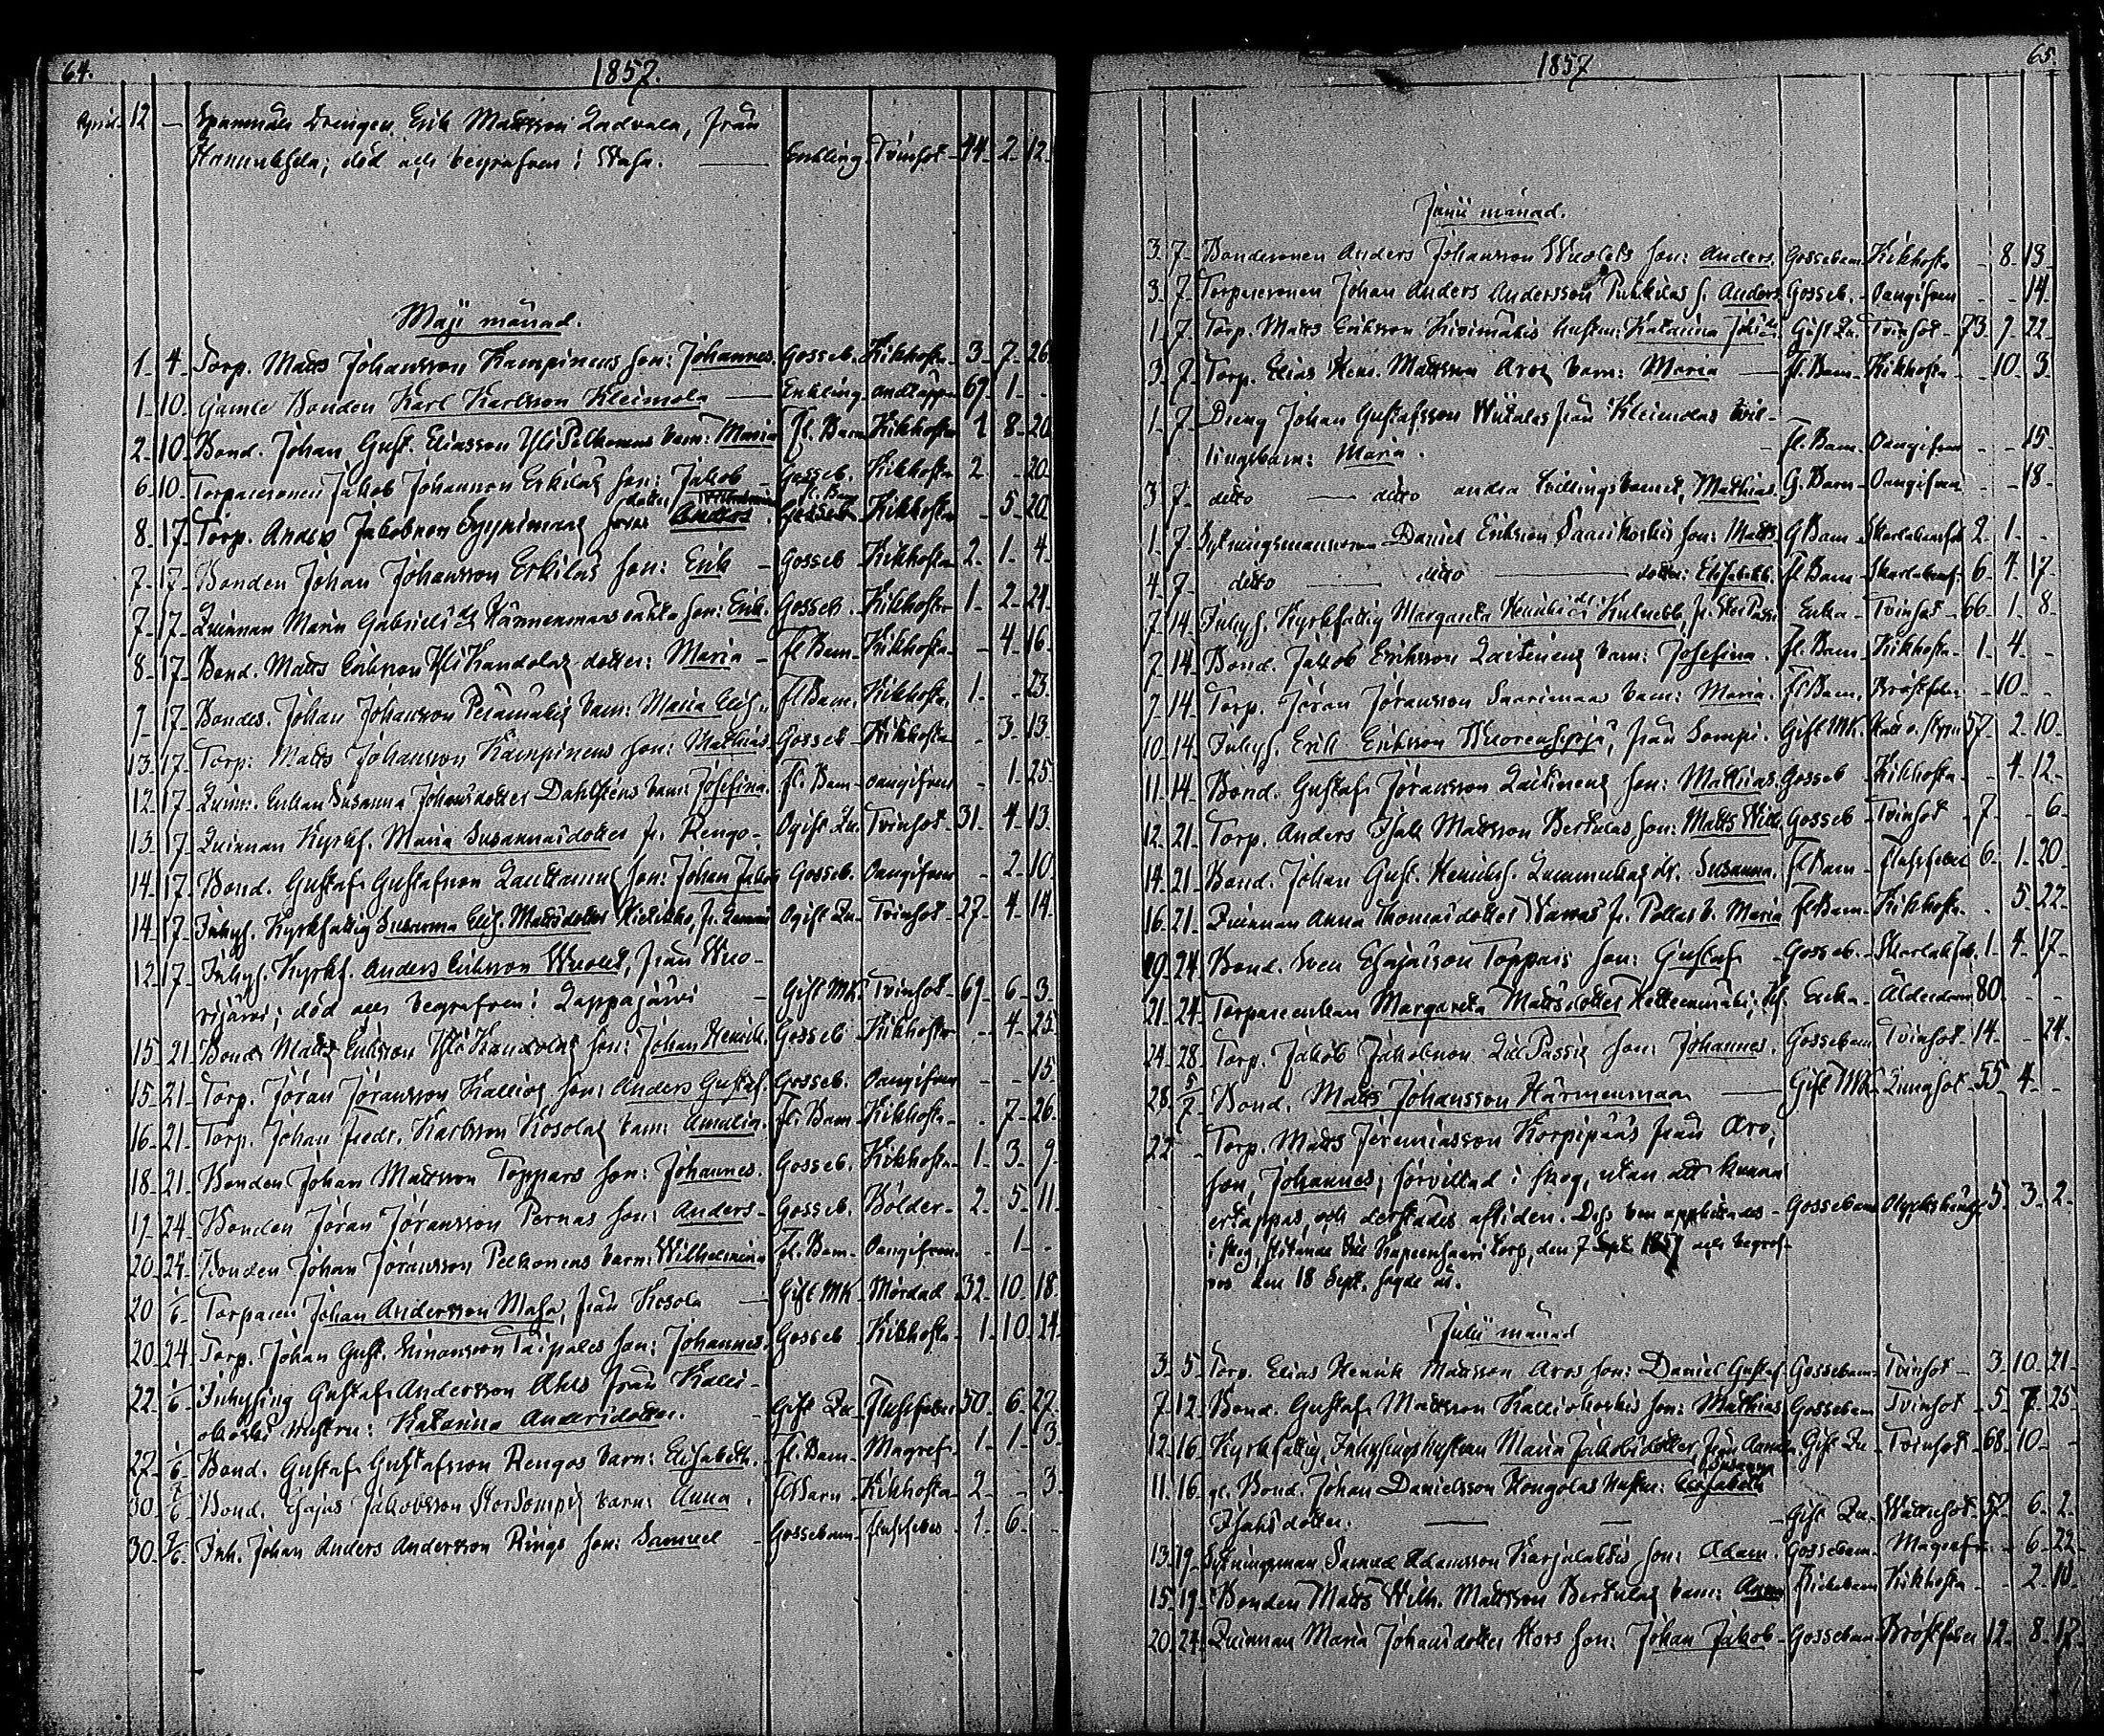 64.
1857.
April 12 — Spannmåls Drengen Erik Mattsson Ladvala, från
Hannuksela; död och begrafven i Wasa. — Enkling Tvinsot 44 2 12
Maji månad.
1 4 Torp. Matts Johansson Kampinens son: Johannes. Gosseb. Kikhosta 3 7 26
1 10 Gamle Bonden Karl Karlsson Kleimola — Enkling andtäppa 69 1 -
2 10 Bond. Johan Gust. Eliasson Yli Pelkonens barn: Maria Fl. Barn Kikhosta 1 8 20
6 10 Torparesonen Jakob Johansson Erkilas son: Jakob Gosseb. Kikhosta 2 - 20
8 17 Torp. Anders Jakobsson Syynimaas dotter Wilhelmina Fl. Barn Kikhosta - 5 20
7 17 Bonden Johan Johansson Erkilas son: Erik Gosseb Kikhosta 2 1 4
7 17 Quinnan Maria Gabriels dr Härmenmaas oäkta son: Erik. Gosseb. Kikhosta 1 2 24
8 17 Bond. Matts Eriksson Yli Kandolas dotter: Maria Fl Barn Kikhosta - 4 16
9 17 Bondes. Johan Johansson Perämäkis barn: Maria Lis. Fl Barn. Kikhosta 1 - 23
13 17 Torp: Matts Johansson Kampinens son: Mathias Gosseb Kikhosta - 3 13
12 17 Quinn. Enkan Susanna Johansdotter Dahlstens barn: Josefina. Fl. Barn oangifven - 1 25
13 17 Quinnan Kyrkf. Maria Susannasdotter fr. Rengo Ogift Qu. Tvinsot 31 4 13
14 17 Bond. Gustaf Gustafsson Lauttamus son: Johan Jakob Gosseb. Oangifven - 2 10
14 17 Inhys. Kyrkfattig Susanna Lis. Mattsdotter Ogift Qu Tvinsot 27 4 14
12 17 Inhys. Kyrkf. Anders Eriksson Wuolet, från Wuo-
rijärvi; död och begrafven i Lappajärvi Gift MK. Tvinsot 69 6 3
15 21 Bond. Matts Eriksson Yli Kandolas son: Johan Henrik. Gosseb Kikhosta - 4 25
15 21 Torp. Jöran Jöransson Kallios son: Anders Gustaf. Gosseb. Oangifven - - 15
16 21 Torp. Johan Fredr. Karlsson Kosolas barn: Amalia. Fl. Barn Kikhosta - 7 26
18 21 Bonden Johan Mattsson Toppars son: Johannes. Gosseb. Kikhosta 1 3 9
19 24 Bonden Jöran Jöransson Pernas son: Anders Gosseb. Bölder 2 5 11
20 24 Bonden Johan Jöransson Pelkonens barn: Wilhelmina Fl. Barn Oangifven - 1 -
20 1/6 Torparen Johan Andersson Masa, från Kosola — Gift MK Mördad 32 10 18
20 24 Torp. Johan Gust. Simonsson Taipales son: Johannes. Gosseb Kikhosta 1 10 24
22 1/6 Inhysing Gustaf Andersson Ahls från Kalli-
okoski hustru: Katarina Andersdotter. Gift Qu Flussfeber 50 6 27
27 1/6 Bond. Gustaf Gustafsson Rengos barn: Elisabeth. Fl. Barn Magref 1 1 3
30 7/6 Bond. Esajas Jakobsson Storsompis barn: Anna. Fl Barn Kikhosta 2 - 3
30 7/6 Inh. Johan Anders Andersson Rings son: Samuel Gossebarn Flussfeber 1 6 -
65.
1857
Junii månad.
3 7 Bondesonen Anders Johansson Wuolets son: Anders. Gossebarn Kikhosta - 8 13
3 7 Torparesonen Johan Anders Andersson Puhkilas s. Anders Gosseb. Oangifven - - 14
1 7 Torp. Matts Eriksson Kivimäkis hustru: Katarina Gift Qu. Tvinsot 73 9 22
3 7 Torp. Elias Hen. Mattsson Aros barn: Maria — Fl. Barn Kikhosta - 10 3
1 7 Dreng Johan Gustafsson från Kleimolas tvil-
lingsbarn: Maria. Fl. Barn Oangifven - - 15
3 7 ditto — ditto andra tvillingsbarnet, Mathias G. Barn Oangifven - - 18
1 7 Sytningsmannen Daniel Eriksson Saarikoskis son: Matts G Barn Skarlakansfeb 2 1 -
4 7 ditto — ditto — dotter: Elisabeth. Fl Barn Skarlakansf. 6 4 17
7 14 Inhys. Kyrkfattig Margareta Henriks dr Enka Tvinsot 66 1 8
7 14 Bond. Jakob Eriksson Laitinens barn: Josefina. Fl. Barn Kikhosta 1 4 -
9 14 Torp. Jöran Jöransson Saarimaas barn: Maria. Fl Barn. Bröstfeber - 10 -
10 14 Inhys. Erik Eriksson Wuorensyrjä, från Sompi. Gift MK. 57 2 10
11 14 Bond. Gustaf Jöransson Laitinens son: Mathias. Gosseb Kikhosta - 4 12
12 21 Torp. Anders Isak Mattsson Bertulas son: Matts Wilh. Gosseb Tvinsot 7 - 6
14 21 Bond. Johan Gust. Henrikss. Lummukas dr. Susanna. Fl Barn Flussfeber 6 1 20
16 21 Quinnan Anna Thomasdotter fr. Pollas b. Maria Fl Barn Kikhosta - 5 22
19 24 Bond. Sven Esajasson Toppars son: Gustaf Gosseb. Skarlaksf. 1 4 17
21 24 Torpareenkan Margareta Mattsdotter Enka Ålderdom 80 - -
24 28 Torp. Jakob Jakobsson LillPassis son: Johannes. Gossebarn Tvinsot 14 - 24
28 5/7 Bond. Matts Johansson Härmenmaa — Gift MK Lungsot 55 4 -
22 - Torp. Matts Jeremiasson Korpipääs från Aro,
son, Johannes; förvillad i skog, utan att kunna
ertappas, och derstädes afliden. Dess ben upphittades Gossebarn Olyckshänd. 5 3 2
i skog, den 7 Sept. 1857 och begrof-
vos den 18 Sept. sagde år.
Julii månad
3 5 Torp. Elias Henrik Mattsson Aros son: Daniel Gustaf Gossebarn Tvinsot 3 10 21
7 12 Bond. Gustaf Mattsson Kalliokoskis son: Mathias Gossebarn Tvinsot 5 7 25
12 16 Kyrkfattig Inhysingshustrun Maria Jakobsdotter Gift Qu Tvinsot 68 10 -
11 16 gl. Bond. Johan Danielsson Kongolas hustru: Susanna
Isaksdotter. — Gift Qu. Wattusot 57 6 2
13 19 Sytningsman Samuel Adamsson Karjalaktis son: Adam. Gossebarn Magref - 6 22
15 19 Bonden Matts Wilh. Mattsson Bertulas barn: Anna Flickebarn Kikhosta - 2 10
20 24 Quinnan Maria Johansdotter Stors son: Johan Jakob Gossebarn Bröstfeber 12 8 17